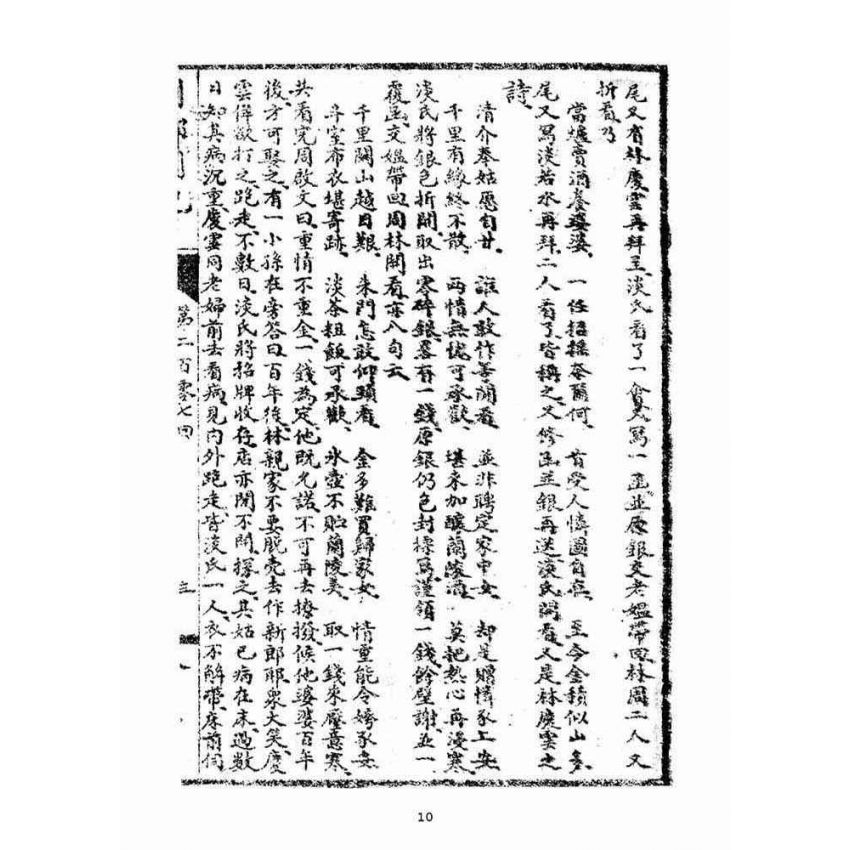 尾又有林慶雲再拜呈淡氏看了一會又寫一函並原銀交老媪帶回林周二人又
折看乃
當爐賣酒養婆婆 一任招搖奈爾何 肯受人憐圖自在 至今金積似山多
尾又寫淡若水再拜二人看了皆稱之又修函並銀再送淡氏開看又是林慶雲之
詩
清介奉姑愿自甘 誰人敢作等閑看 並非聘定家中女 却是贈憐承上安
千里有緣終不散 兩情無忱可承歡 堪來加釀蘭陵酒 莫把熱心再漫寒
淡氏將銀包折開取出零碎銀畧有一錢原銀仍包封標寫謹領一錢餘璧謝並一
覆函交媪帶回周林開看亦八句云
千里關山越日艱 朱門怎敢仰頭看 金多難買歸家女 情重能令嫁承安
斗室布衣堪寄跡 淡茶粗飯可承歡 氷壺不貯蘭陵美 取一錢來壓意寒
共看完周啟文曰重情不重金一錢為定他既允諾不可再去撩撥候他婆婆百年
後才可娶之有一小孫在旁答曰百年後林親家不要脫壳去作新郎耶眾大笑慶
雲佯欲打之跑走不數日淡氏將招牌收存店亦閉不開探之其姑已病在床過數
日知其病沉重慶雲同老婦前去看病見内外跑走皆淡氏一人衣不解帶床前伺
第二百零七回
三
10